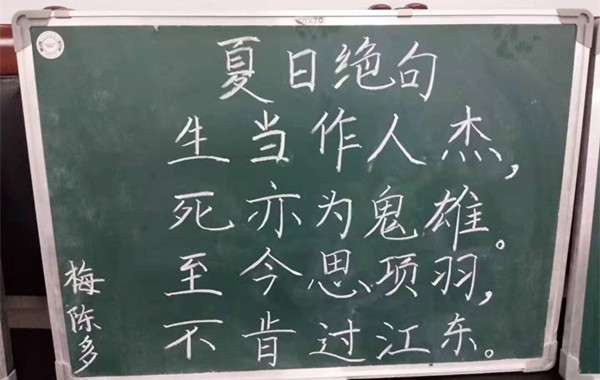 50×70
夏日绝句
生当作人杰，
死亦为鬼雄。
至今思项羽，
不肯过江东。
梅陈多